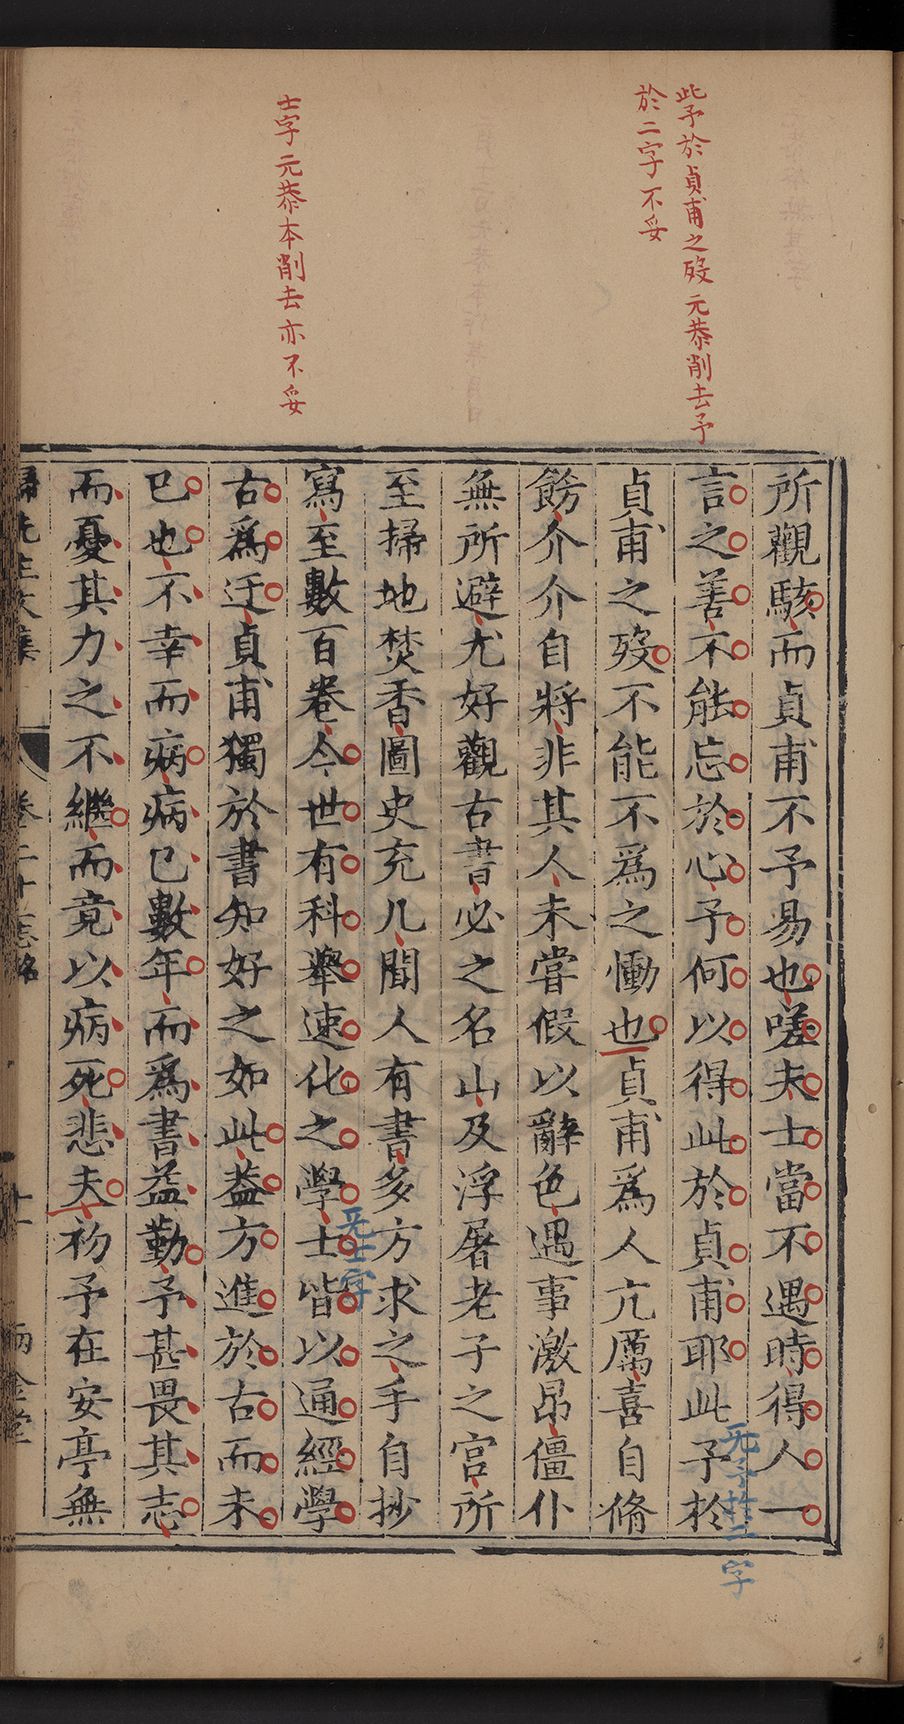 此予於貞甫之歿元恭削去予
於二字不妥
士字元恭本削去亦不妥
所觀駭而貞甫不予易也嗟夫士當不遇時得人一
言之善不能忘於心予何以得此於貞甫耶此予於
无予於二字
貞甫之歿不能不爲之慟也貞甫爲人亢厲喜自脩
飭介介自將非其人未嘗假以辭色遇事激昂僵仆
無所避尤好觀古書必之名山及浮屠老子之宮所
至掃地焚香圖史充几聞人有書多方求之手自抄
寫至數百卷今世有科舉速化之學士皆以通經學
无士字
古爲迂貞甫獨於書知好之如此葢方進於古而未
已也不幸而病病已數年而爲書益勤予甚畏其志
而憂其力之不繼而竟以病死悲夫初予在安亭無
卷二十 志銘 十一